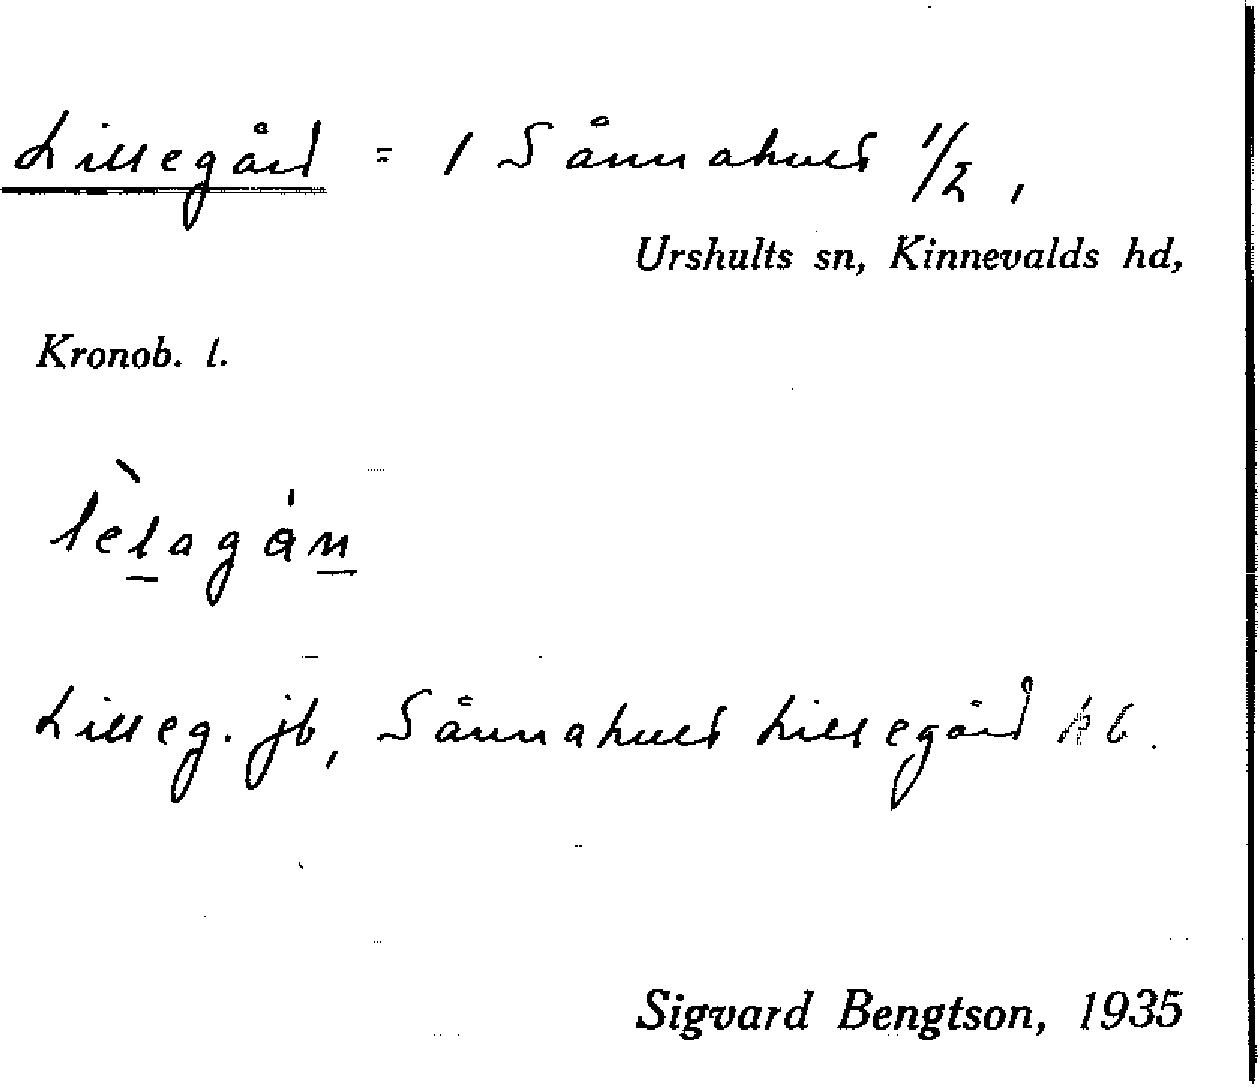 Lillegård = 1 Sånnahult 1/2,
Urshults sn, Kinnevalds hd,
Kronob. l.
lèlagán
Lilleg. jb, Sånnahult Lillegård kb.
Sigvard Bengtson, 1935